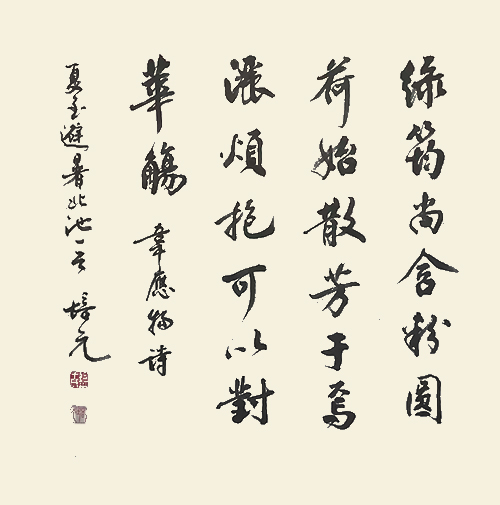 綠筠尚含粉圓
荷始散芳于焉
灑煩抱可以對
華觴 韋應物詩
夏至避暑北池一首 培元